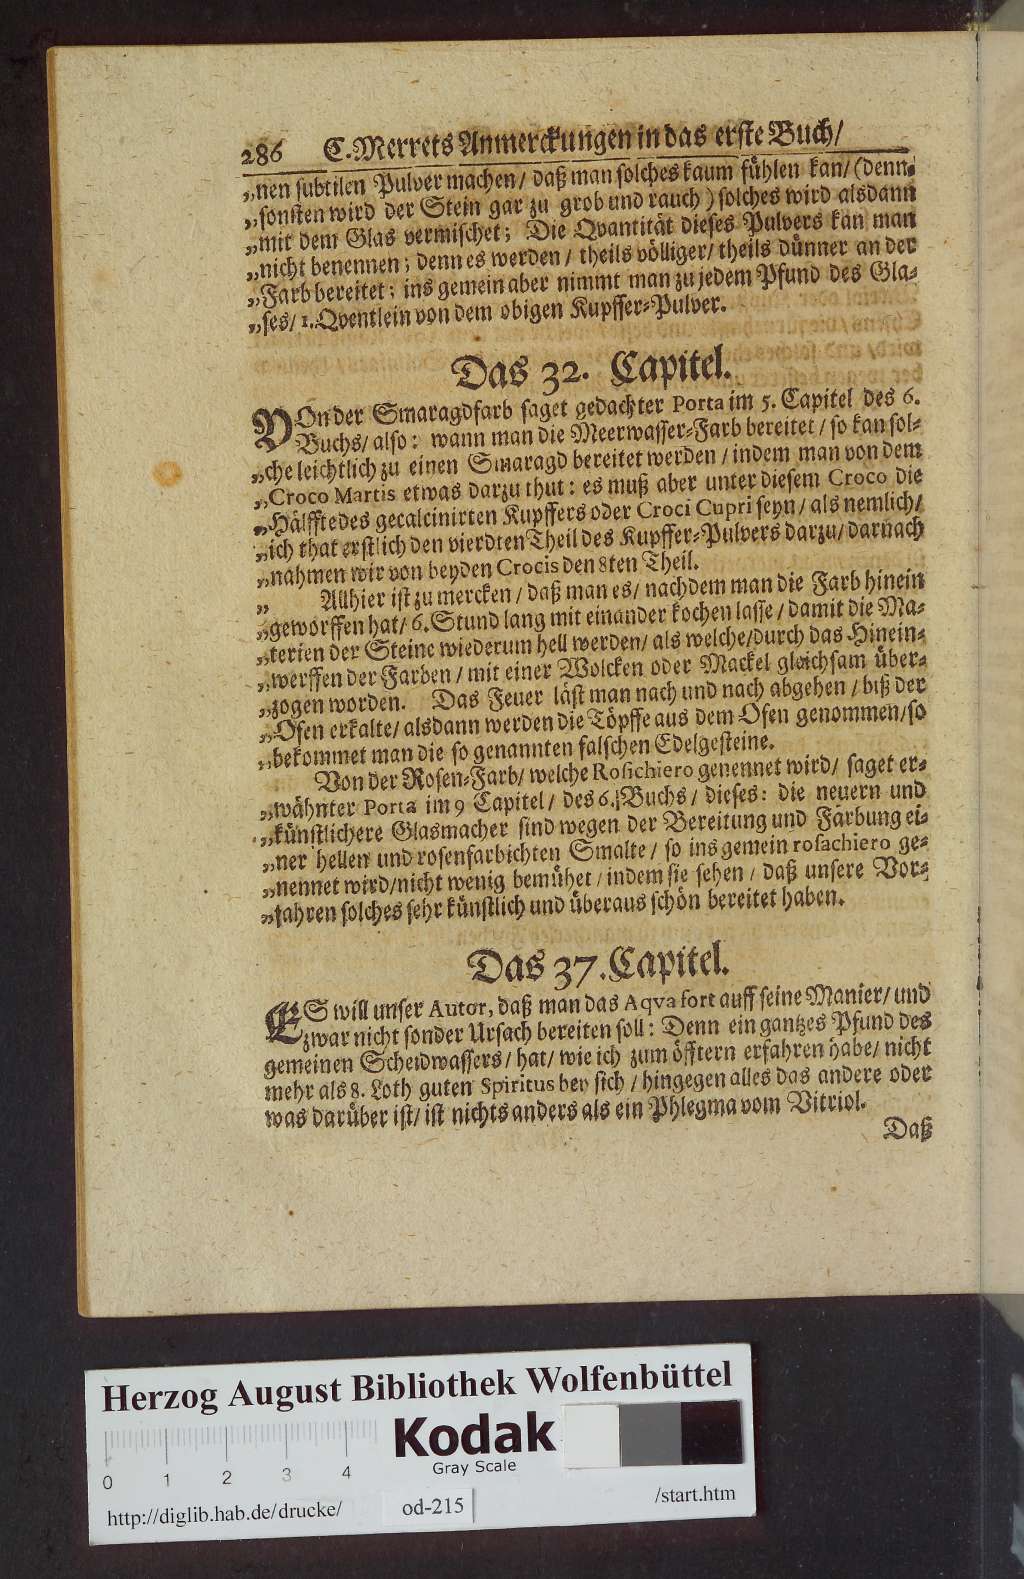 286 C. Merrets Anmerckungen in das erste Buch/
„nen subtilen Pulver machen/ daß man solches kaum fühlen kan/ (denn
„sonsten wird der Stein gar zu grob und rauch) solches wird alsdann
„mit dem Glas vermischet; Die Qvantität dieses Pulvers kan man
„nicht benennen; denn es werden/ theils völliger/ theils dünner an der
„Farb bereitet; ins gemein aber nimmt man zu jedem Pfund des Gla-
„ses/ 1. Qventlein von dem obigen Kupffer-Pulver.
Das 32. Capitel.
VOn der Smaragdfarb saget gedachter Porta im 5. Capitel des 6.
Buchs/ also: wann man die Meerwasser-Farb bereitet/ so kan sol-
„che leichtlich zu einen Smaragd bereitet werden/ indem man von dem
„Croco Martis etwas darzu thut: es muß aber unter diesem Croco die
„Hälffte des gecalcinirten Kupffers oder Croci Cupri seyn/ als nemlich/
„ich that erstlich den vierdten Theil des Kupffer-Pulvers darzu/ darnach
„nahmen wir von beyden Crocis den 8ten Theil.
„ Allhier ist zu mercken/ daß man es/ nachdem man die Farb hinein
„geworffen hat/ 6. Stund lang mit einander kochen lasse/ damit die Ma-
„terien der Steine wiederum hell werden/ als welche/ durch das Hinein-
„werffen der Farben/ mit einer Wolcken oder Mackel gleichsam über-
„zogen worden. Das Feuer läst man nach und nach abgehen/ biß der
„Ofen erkalte/ alsdann werden die Töpffe aus dem Ofen genommen/ so
„bekommet man die so genannten falschen Edelgesteine.
Von der Rosen-Farb/ welche Rosichiero genennet wird/ saget er-
„wähnter Porta im 9 Capitel/ des 6. Buchs/ dieses: die neuern und
„künstlichere Glasmacher sind wegen der Bereitung und Färbung ei-
„ner hellen und rosenfarbichten Smalte/ so ins gemein rosachiero ge-
„nennet wird/ nicht wenig bemühet/ indem sie sehen/ daß unsere Vor-
„fahren solches sehr künstlich und überaus schön bereitet haben.
Das 37. Capitel.
ES will unser Autor, daß man das Aqva fort auff seine Manier/ und
zwar nicht sonder Ursach bereiten soll: Denn ein gantzes Pfund des
gemeinen Scheidwassers/ hat/ wie ich zum öfftern erfahren habe/ nicht
mehr als 8. Loth guten Spiritus bey sich/ hingegen alles das andere oder
was darüber ist/ ist nichts anders als ein Phlegma vom Vitriol.
Daß
Herzog August Bibliothek Wolfenbüttel
Kodak
Gray Scale
0 1 2 3 4
http://diglib.hab.de/drucke/ od-215 /start.htm